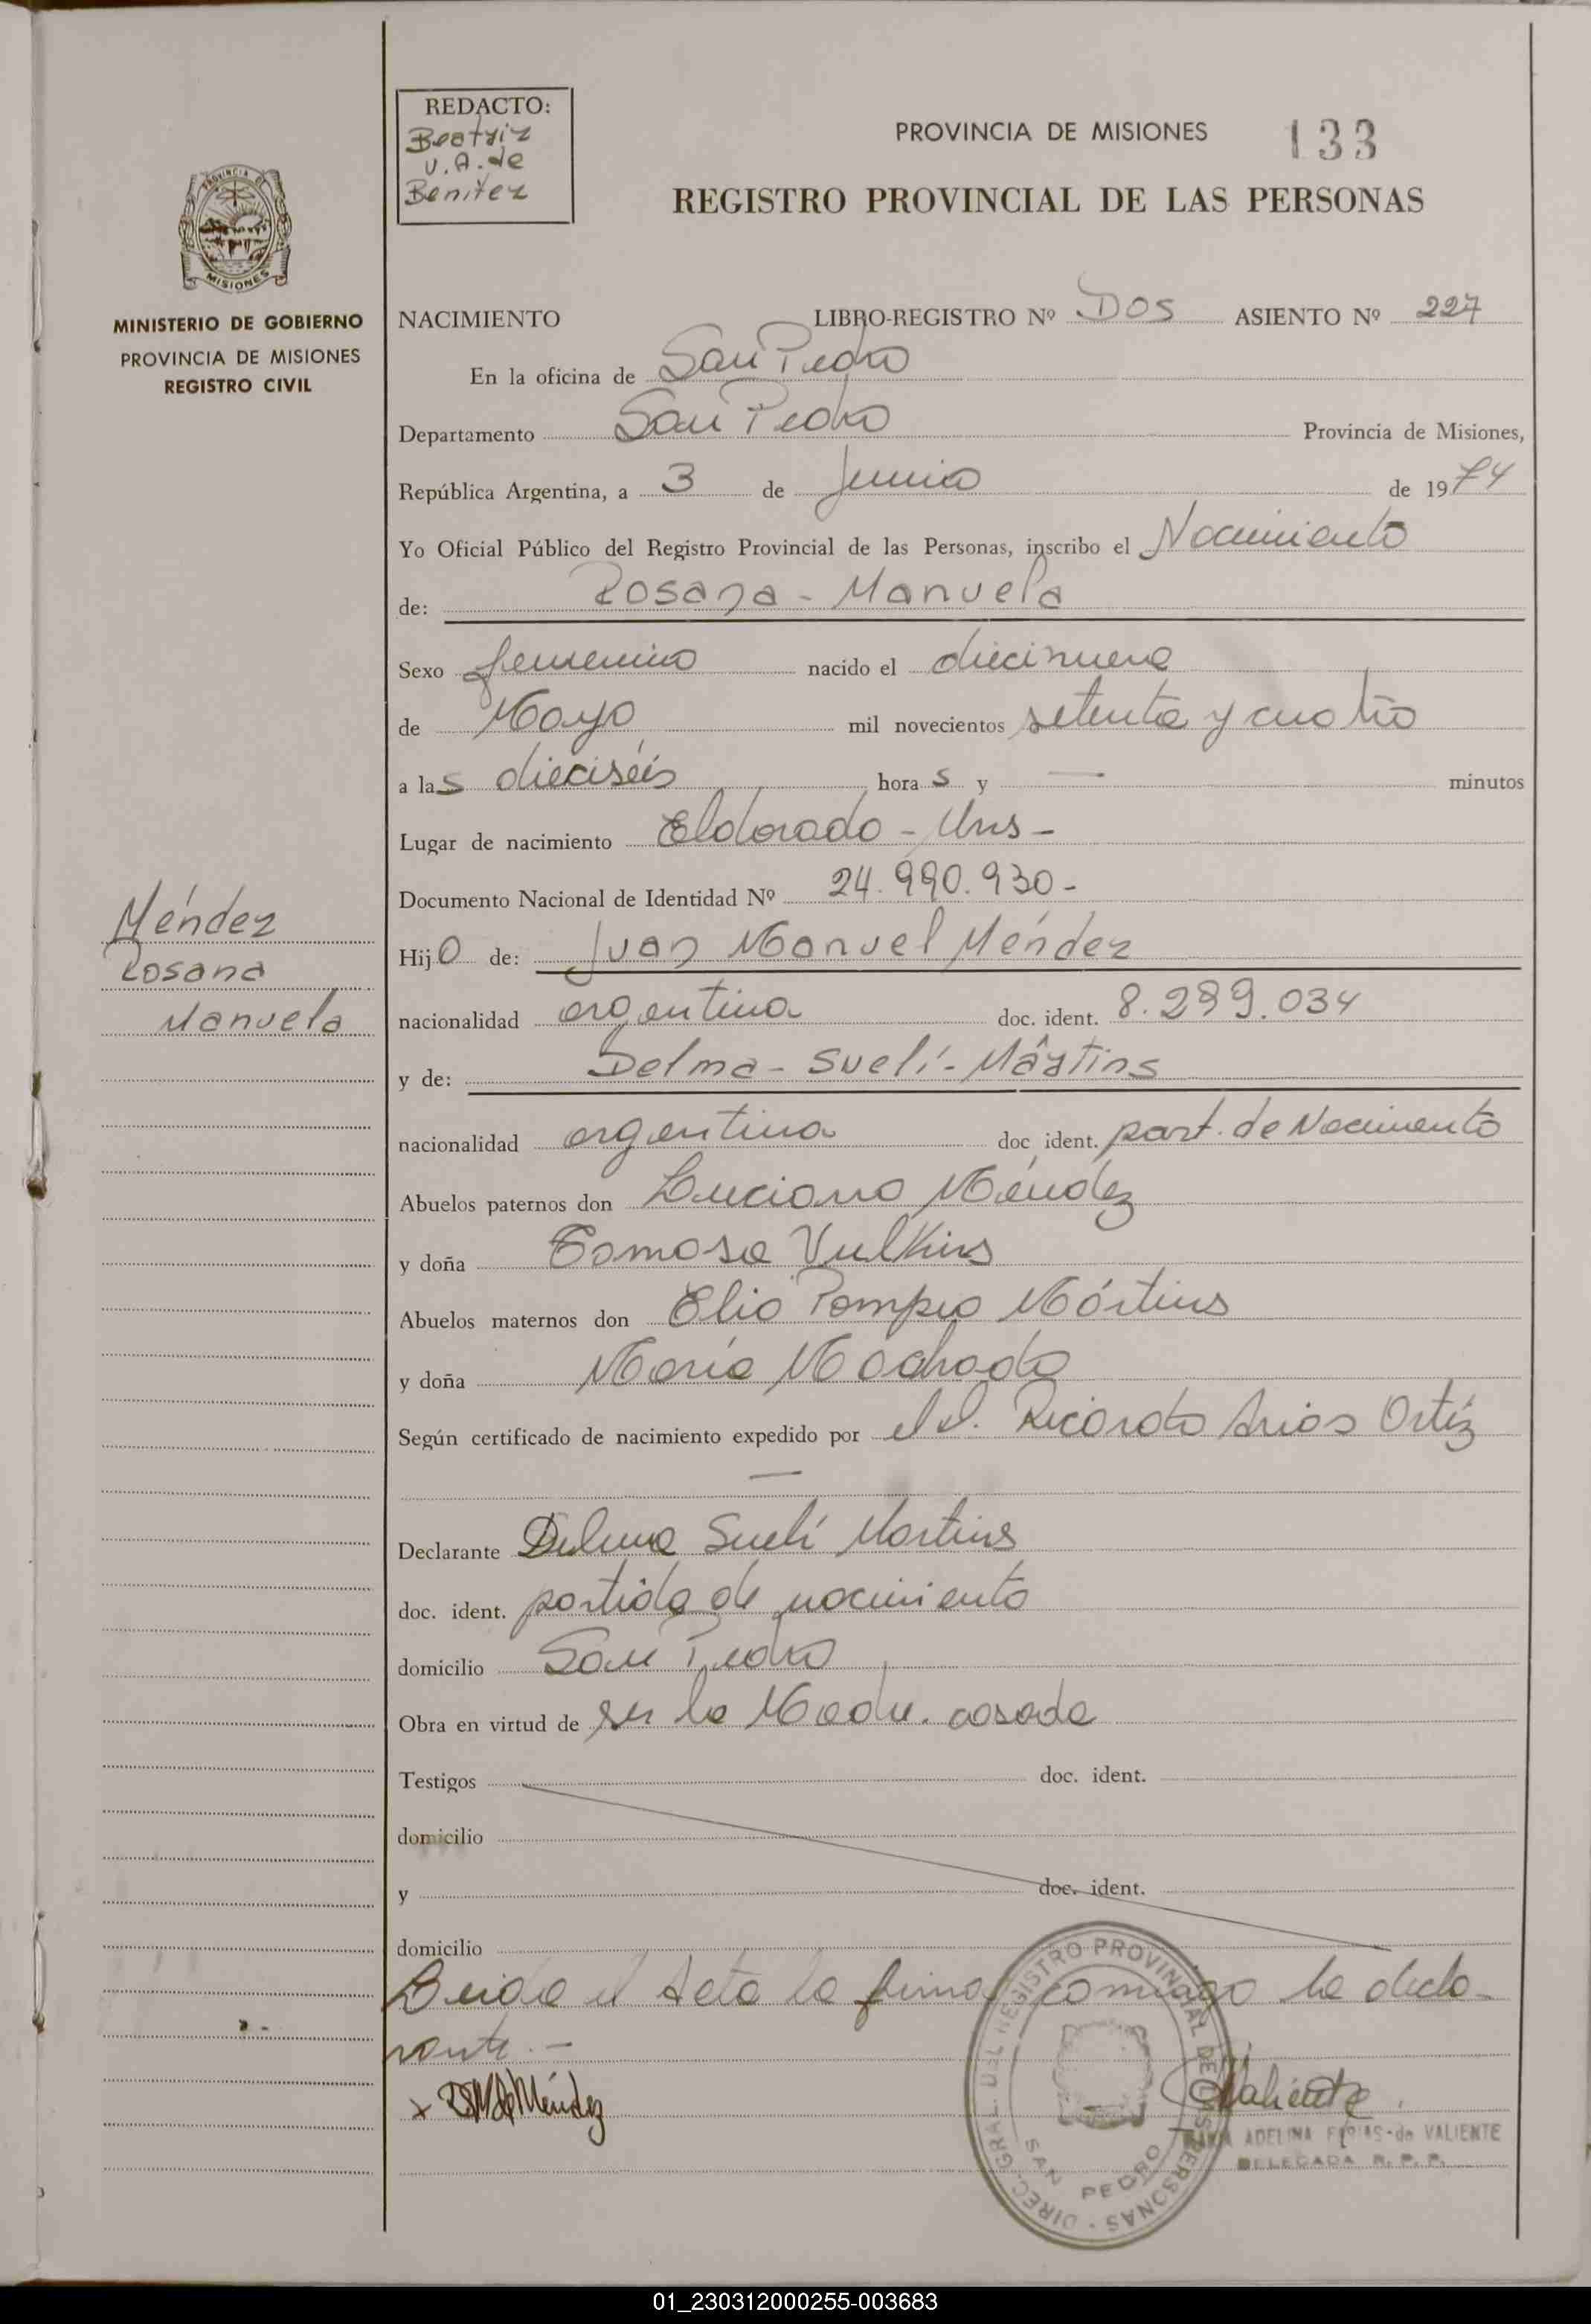 REDACTO:
Beatriz
V. A. de
Benitez
PROVINCIA DE MISIONES 133
REGISTRO PROVINCIAL DE LAS PERSONAS
PROVINCIA DE
MISIONES
MINISTERIO DE GOBIERNO
PROVINCIA DE MISIONES
REGISTRO CIVIL
NACIMIENTO LIBRO-REGISTRO Nº Dos ASIENTO Nº 227
En la oficina de San Pedro
Departamento San Pedro Provincia de Misiones,
República Argentina, a 3 de Junio de 1974
Yo Oficial Público del Registro Provincial de las Personas, inscribo el Nacimiento
de: Rosana - Manuela
Sexo femenino nacido el diecinueve
de Mayo mil novecientos setenta y cuatro
a las dieciséis horas y — minutos
Lugar de nacimiento Eldorado - Mns -
Documento Nacional de Identidad Nº 24.990.930-
Méndez
Rosana
Manuela
Hijo de: Juan Manuel Méndez
nacionalidad argentina doc. ident. 8.299.034
y de: Delma - Suelí - Mártins
nacionalidad argentina doc ident. part. de Nacimiento
Abuelos paternos don Luciano Méndez
y doña Tomasa Vulkins
Abuelos maternos don Elio Pompeo Mártins
y doña María Machado
Según certificado de nacimiento expedido por el d. Ricardo Arias Ortíz
—
Declarante Delma Suelí Martins
doc. ident. partida de nacimiento
domicilio San Pedro
Obra en virtud de ser la Madre. casada
Testigos doc. ident.
domicilio
y doc. ident.
domicilio
Leida el Acta la firma conmigo la decla-
rante. -
x DSM de Méndez
Valiente
ADELINA FARIAS-de VALIENTE
DELEGADA R. P. P.
DIREC. GRAL. DEL REGISTRO PROVINCIAL DE LAS PERSONAS
SAN PEDRO
01_230312000255-003683